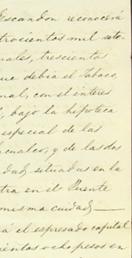 Escandon reconocerá
trocientos mil sete-
nales, trescientos
que debia el Tabaco,
nal, con el interes
, bajo la hipoteca
especial de las
y de las dos
dad, situadas en la
tra en el Puente
misma cuidad
á el espresado capital
ientos ocho pesos en